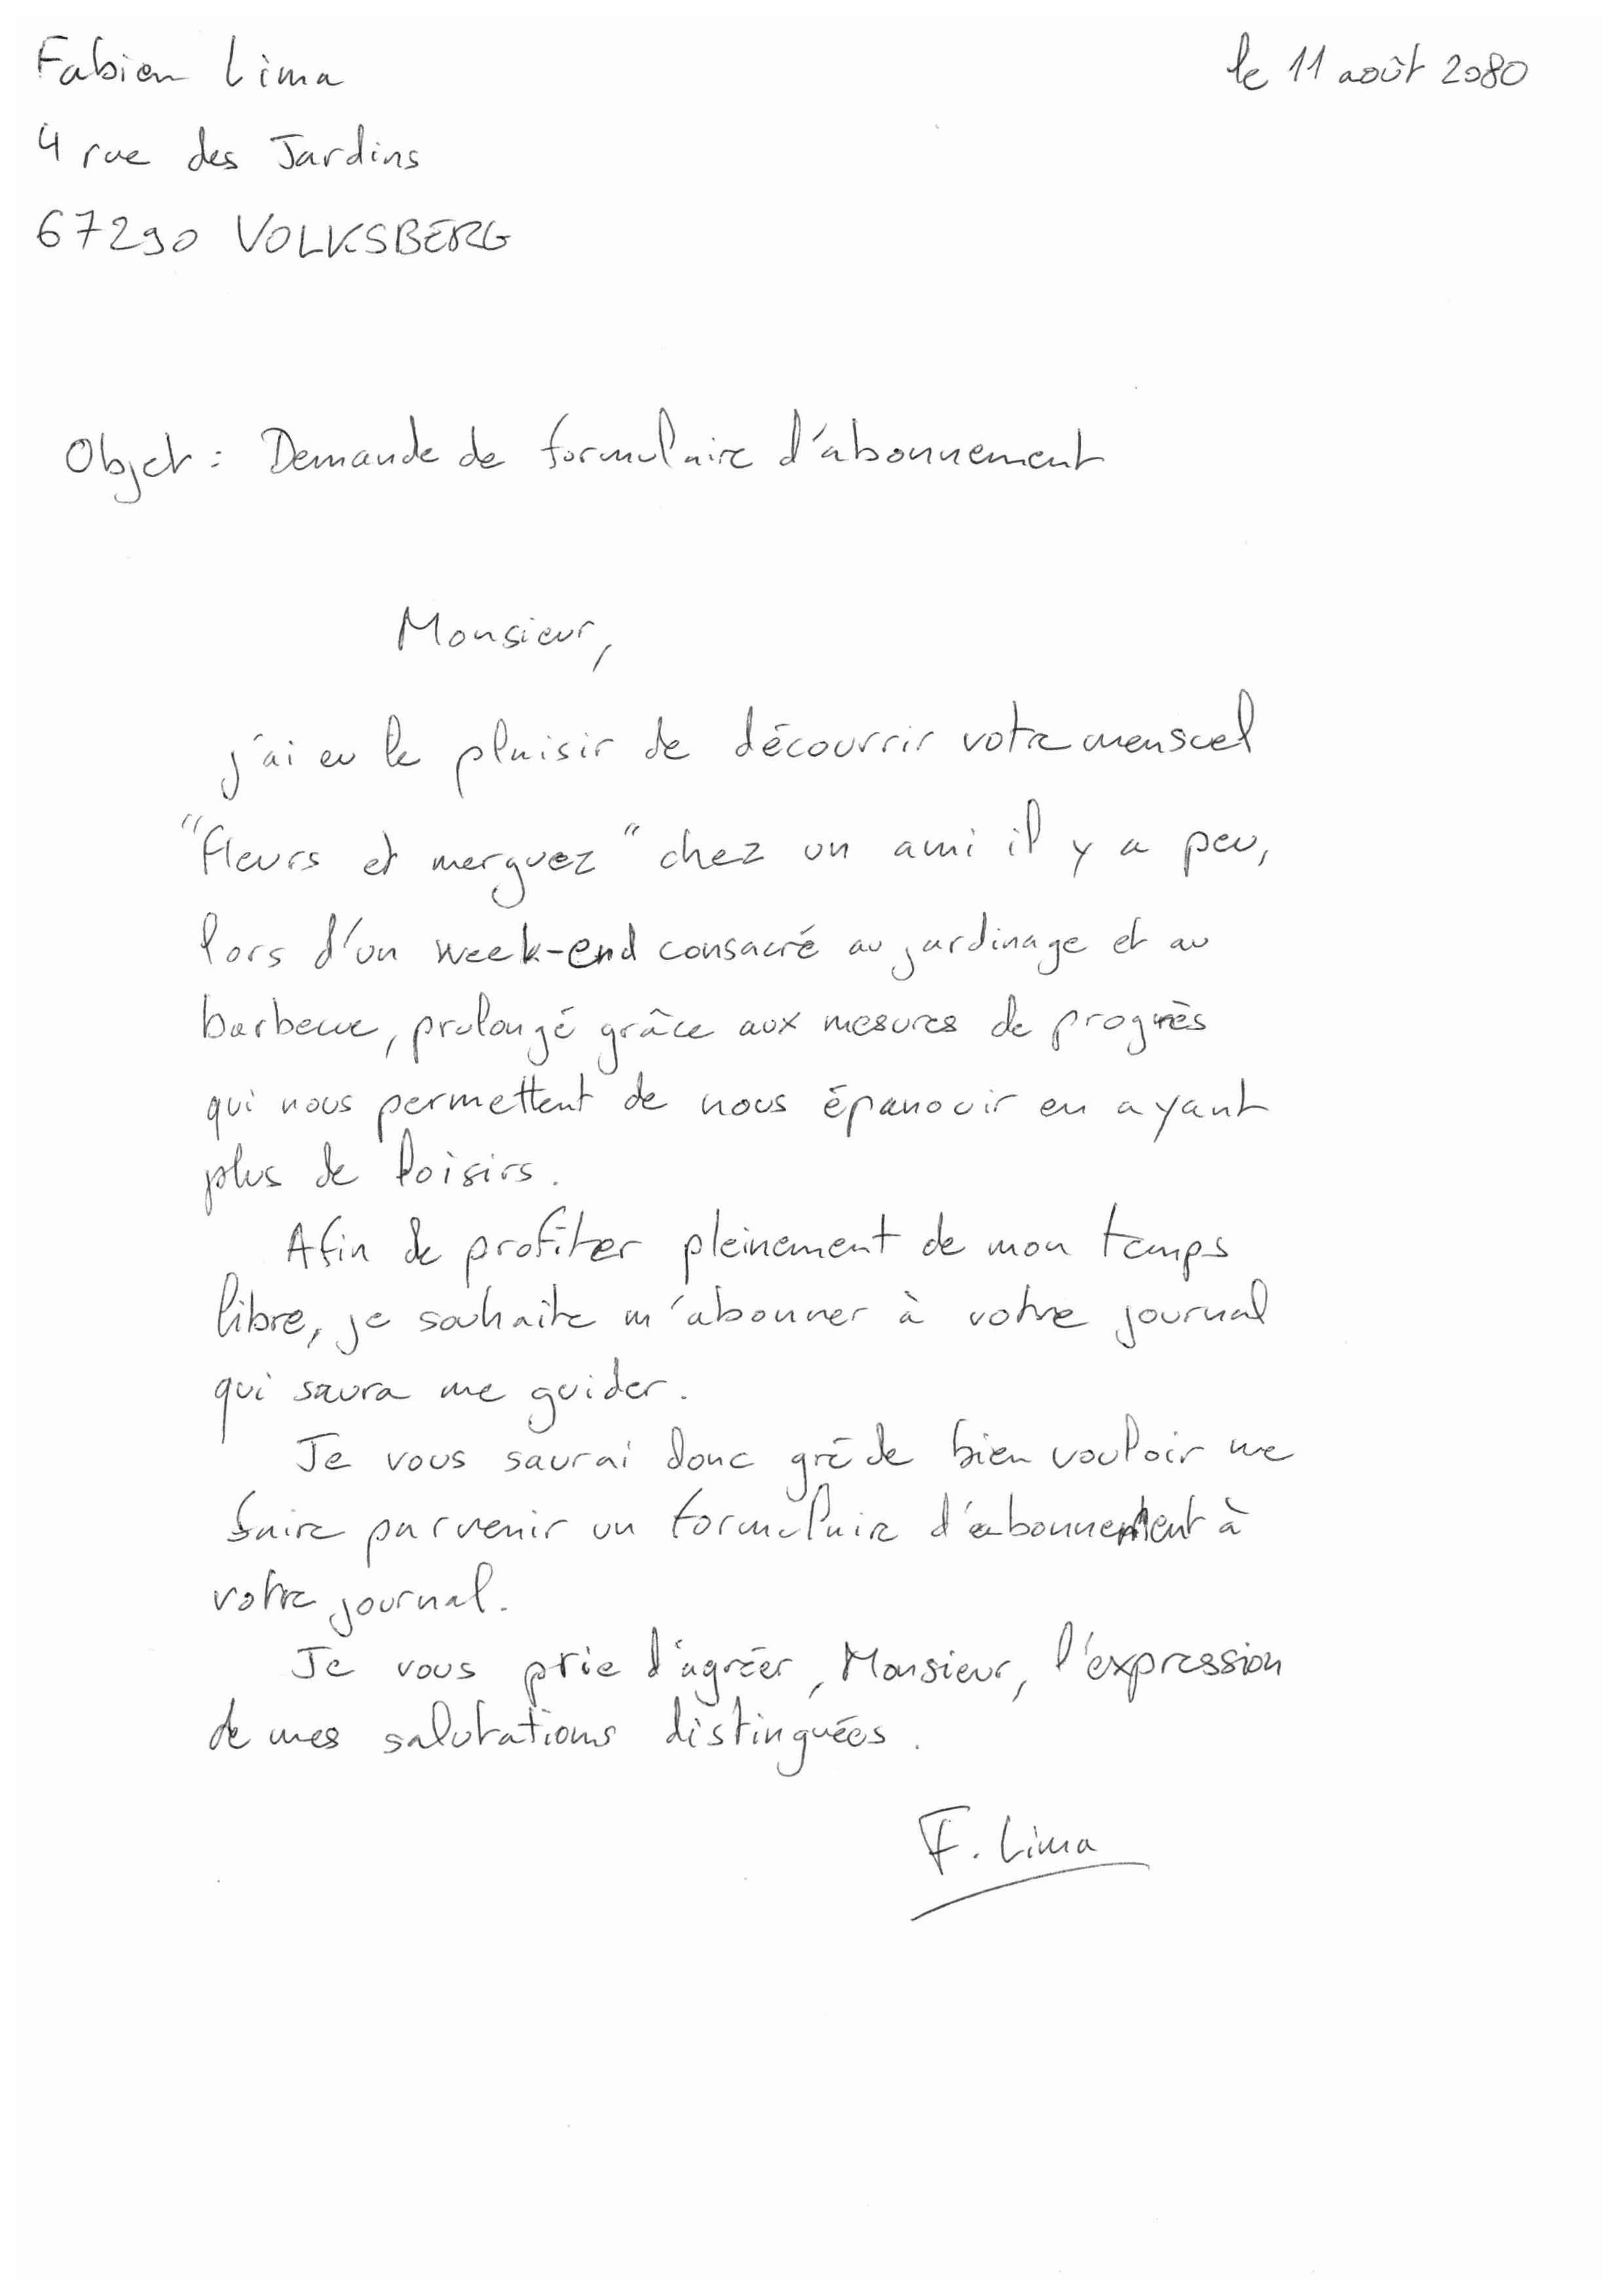 Fabien Lima
le 11 août 2080
4 rue des Jardins
67290 VOLKSBERG
Objet : Demande de formulaire d'abonnement
Monsieur,
j'ai eu le plaisir de découvrir votre mensuel
"fleurs et merguez" chez un ami il y a peu,
lors d'un week-end consacré au jardinage et au
barbecue, prolongé grâce aux mesures de progrès
qui nous permettent de nous épanouir en ayant
plus de loisirs.
Afin de profiter pleinement de mon temps
libre, je souhaite m'abonner à votre journal
qui saura me guider.
Je vous saurai donc gré de bien vouloir me
faire parvenir un formulaire d'abonnement à
votre journal.
Je vous prie d'agréer, Monsieur, l'expression
de mes salutations distinguées.
F. Lima